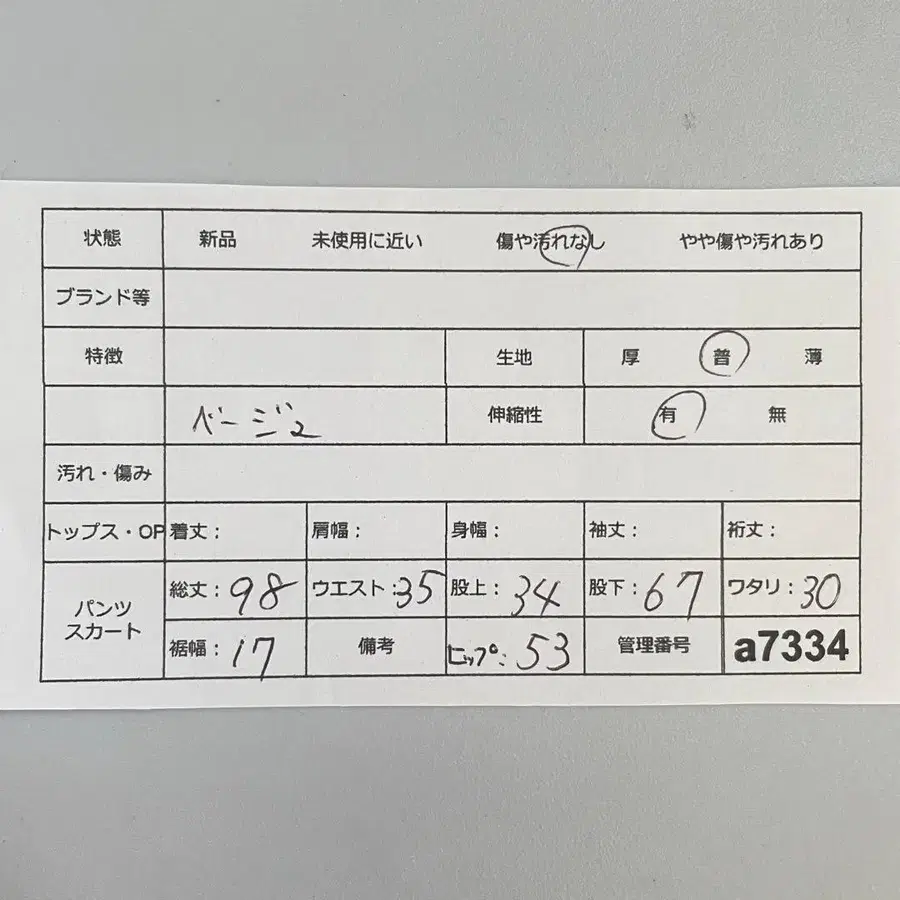 状態 新品 未使用に近い 傷や汚れなし やや傷や汚れあり
ブランド等
特徴 生地 厚 普 薄
ベージュ 伸縮性 有 無
汚れ・傷み
トップス・OP 着丈： 肩幅： 身幅： 袖丈： 裄丈：
パンツ スカート 総丈：98 ウエスト：35 股上：34 股下：67 ワタリ：30
裾幅：17 備考 ヒップ：53 管理番号 a7334